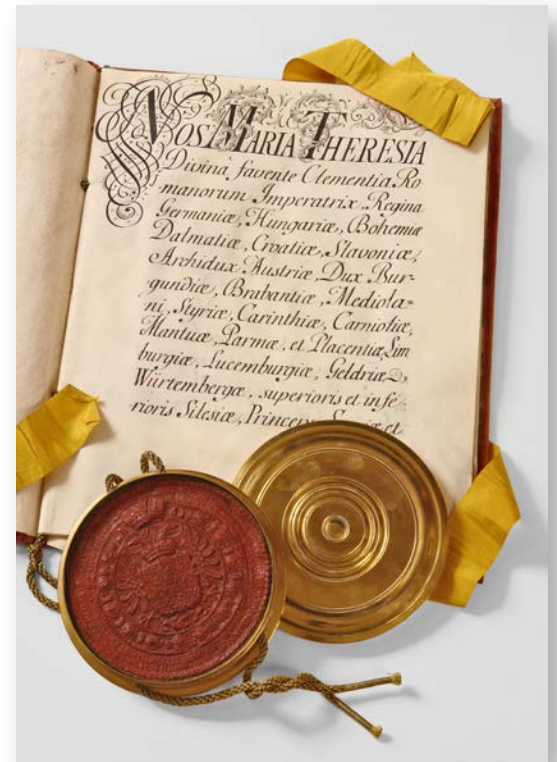 NOS MARIA THERESIA
Divinâ favente Clementia Ro
manorum Imperatrix Regina
Germaniæ, Hungariæ, Bohemiæ
Dalmatiæ, Croatiæ, Slavoniæ,
Archidux Austriæ, Dux Bur-
gundiæ, Brabantiæ, Mediola-
ni, Styriæ, Carinthiæ, Carnioliæ,
Mantuæ, Parmæ, et Placentiæ, Lim
burgiæ, Lucemburgiæ, Geldriæ,
Würtembergæ, superioris et infe-
rioris Silesiæ, et